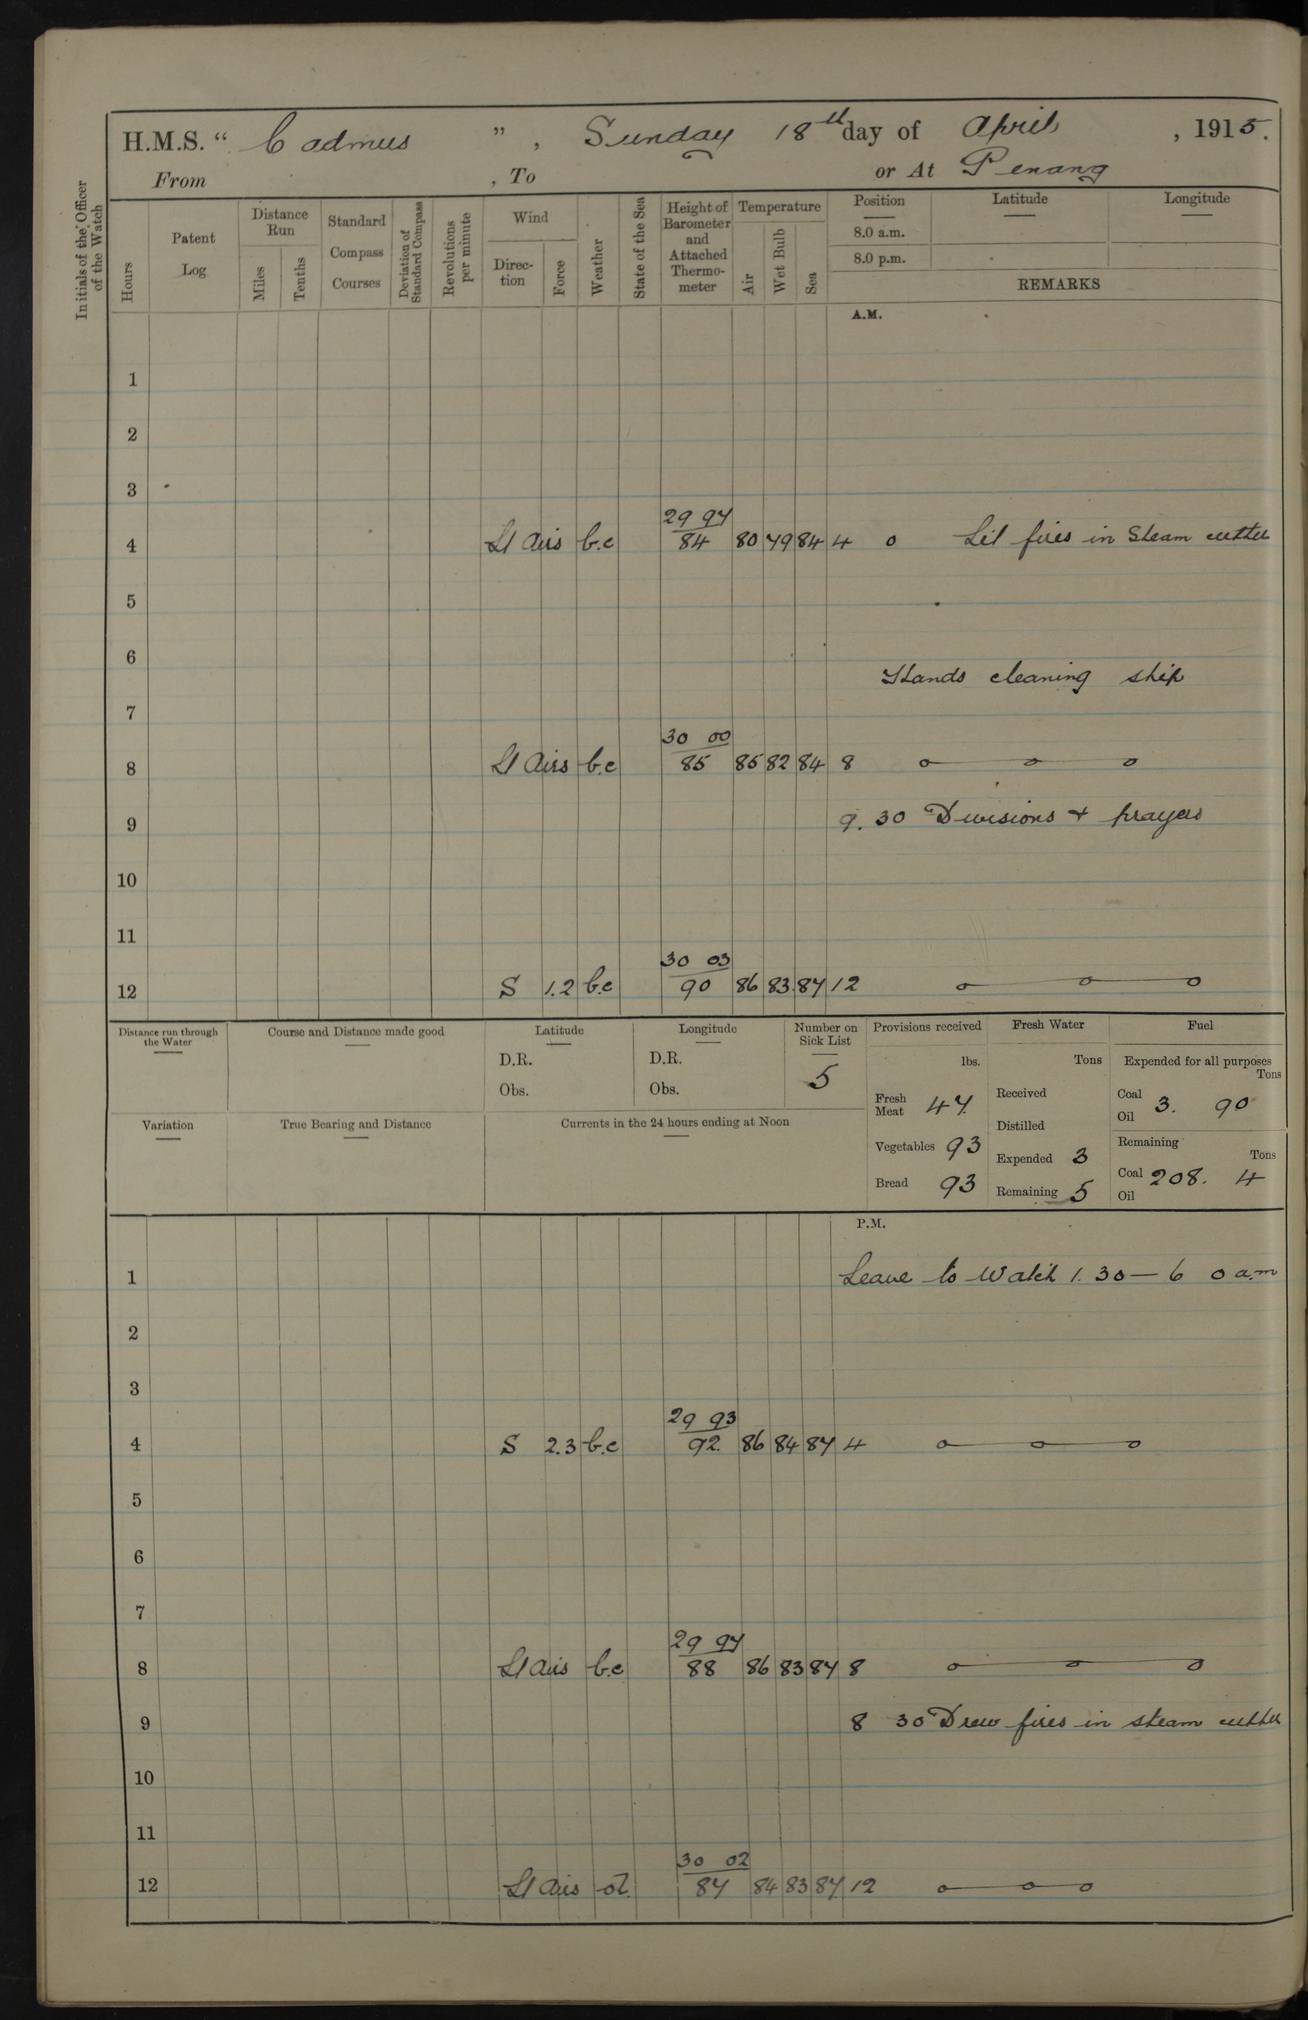 H.M.S. “ Cadmus ” , Sunday 18th day of April , 1915.
From , To or At Penang
Initials of the Officer of the Watch
Hours
Patent Log
Distance Run
Miles
Tenths
Standard Compass Courses
Deviation of Standard Compass
Revolutions per minute
Wind
Direction
Force
Weather
State of the Sea
Height of Barometer and Attached Thermometer
Temperature
Air
Wet Bulb
Sea
Position
8.0 a.m.
8.0 p.m.
Latitude
Longitude
REMARKS
A.M.
1
2
3
29 97
4 Lt Airs b.c 84 80 79 84 4 0 Lit fires in Steam cutter
5
6
Hands cleaning ship
7
30 00
8 Lt Airs b.c 85 85 82 84 8
9 9. 30 Divisions + prayers
10
11
30 03
12 S 1.2 b.c 90 86 83 87 12
Distance run through the Water
Course and Distance made good
Latitude
D.R.
Obs.
Longitude
D.R.
Obs.
Number on Sick List
5
Variation
True Bearing and Distance
Currents in the 24 hours ending at Noon
Provisions received
lbs.
Fresh Meat 47
Vegetables 93
Bread 93
Fresh Water
Tons
Received
Distilled
Expended 3
Remaining 5
Fuel
Expended for all purposes
Tons
Coal
Oil 3. 90
Remaining
Tons
Coal 208. 4
Oil
P.M.
1 Leave to Watch 1. 30 — 6 0 a.m
2
3
29 93
4 S 2.3 b.c 92 86 84 87 4
5
6
7
29 97
8 Lt Airs b.c 88 86 83 87 8
9 8 30 Drew fires in steam cutter
10
11
30 02
12 Lt Airs 87 84 83 87 12